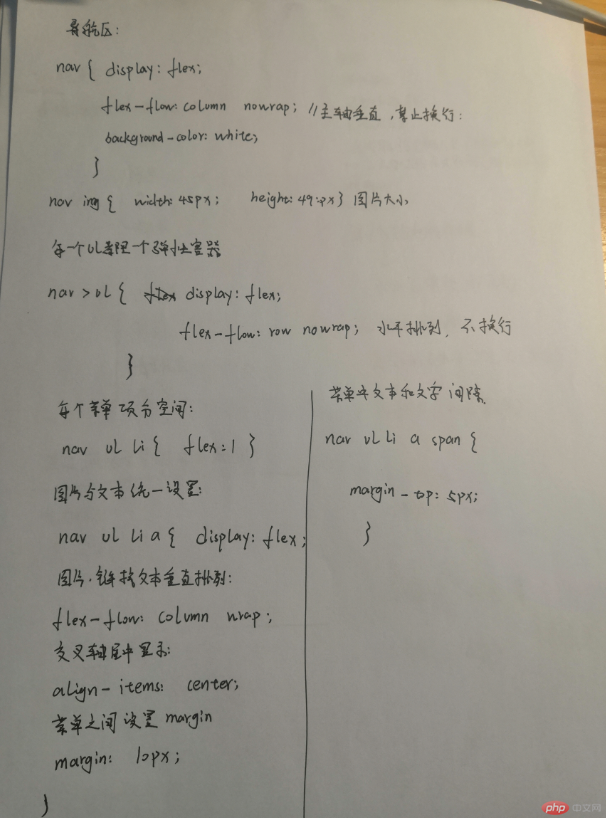 导航区:
nav { display: flex;
flex-flow: column nowrap; //主轴垂直,禁止换行:
background-color: white;
}
nav img { width: 45px; height: 49px } 图片大小
每一个UL表现一个弹性容器
nav > ul { display: flex;
flex-flow: row nowrap; 水平排列,不换行
}
每个菜单项分空间:
nav ul li { flex: 1 }
图片与文本统一设置:
nav ul li a { display: flex;
图片.链接文本垂直排列:
flex-flow: column wrap;
交叉轴居中显示:
align-items: center;
菜单之间设置margin
margin: 10px;
}
菜单中文本和文字间隙
nav ul li a span {
margin-top: 5px;
}
php 中文网